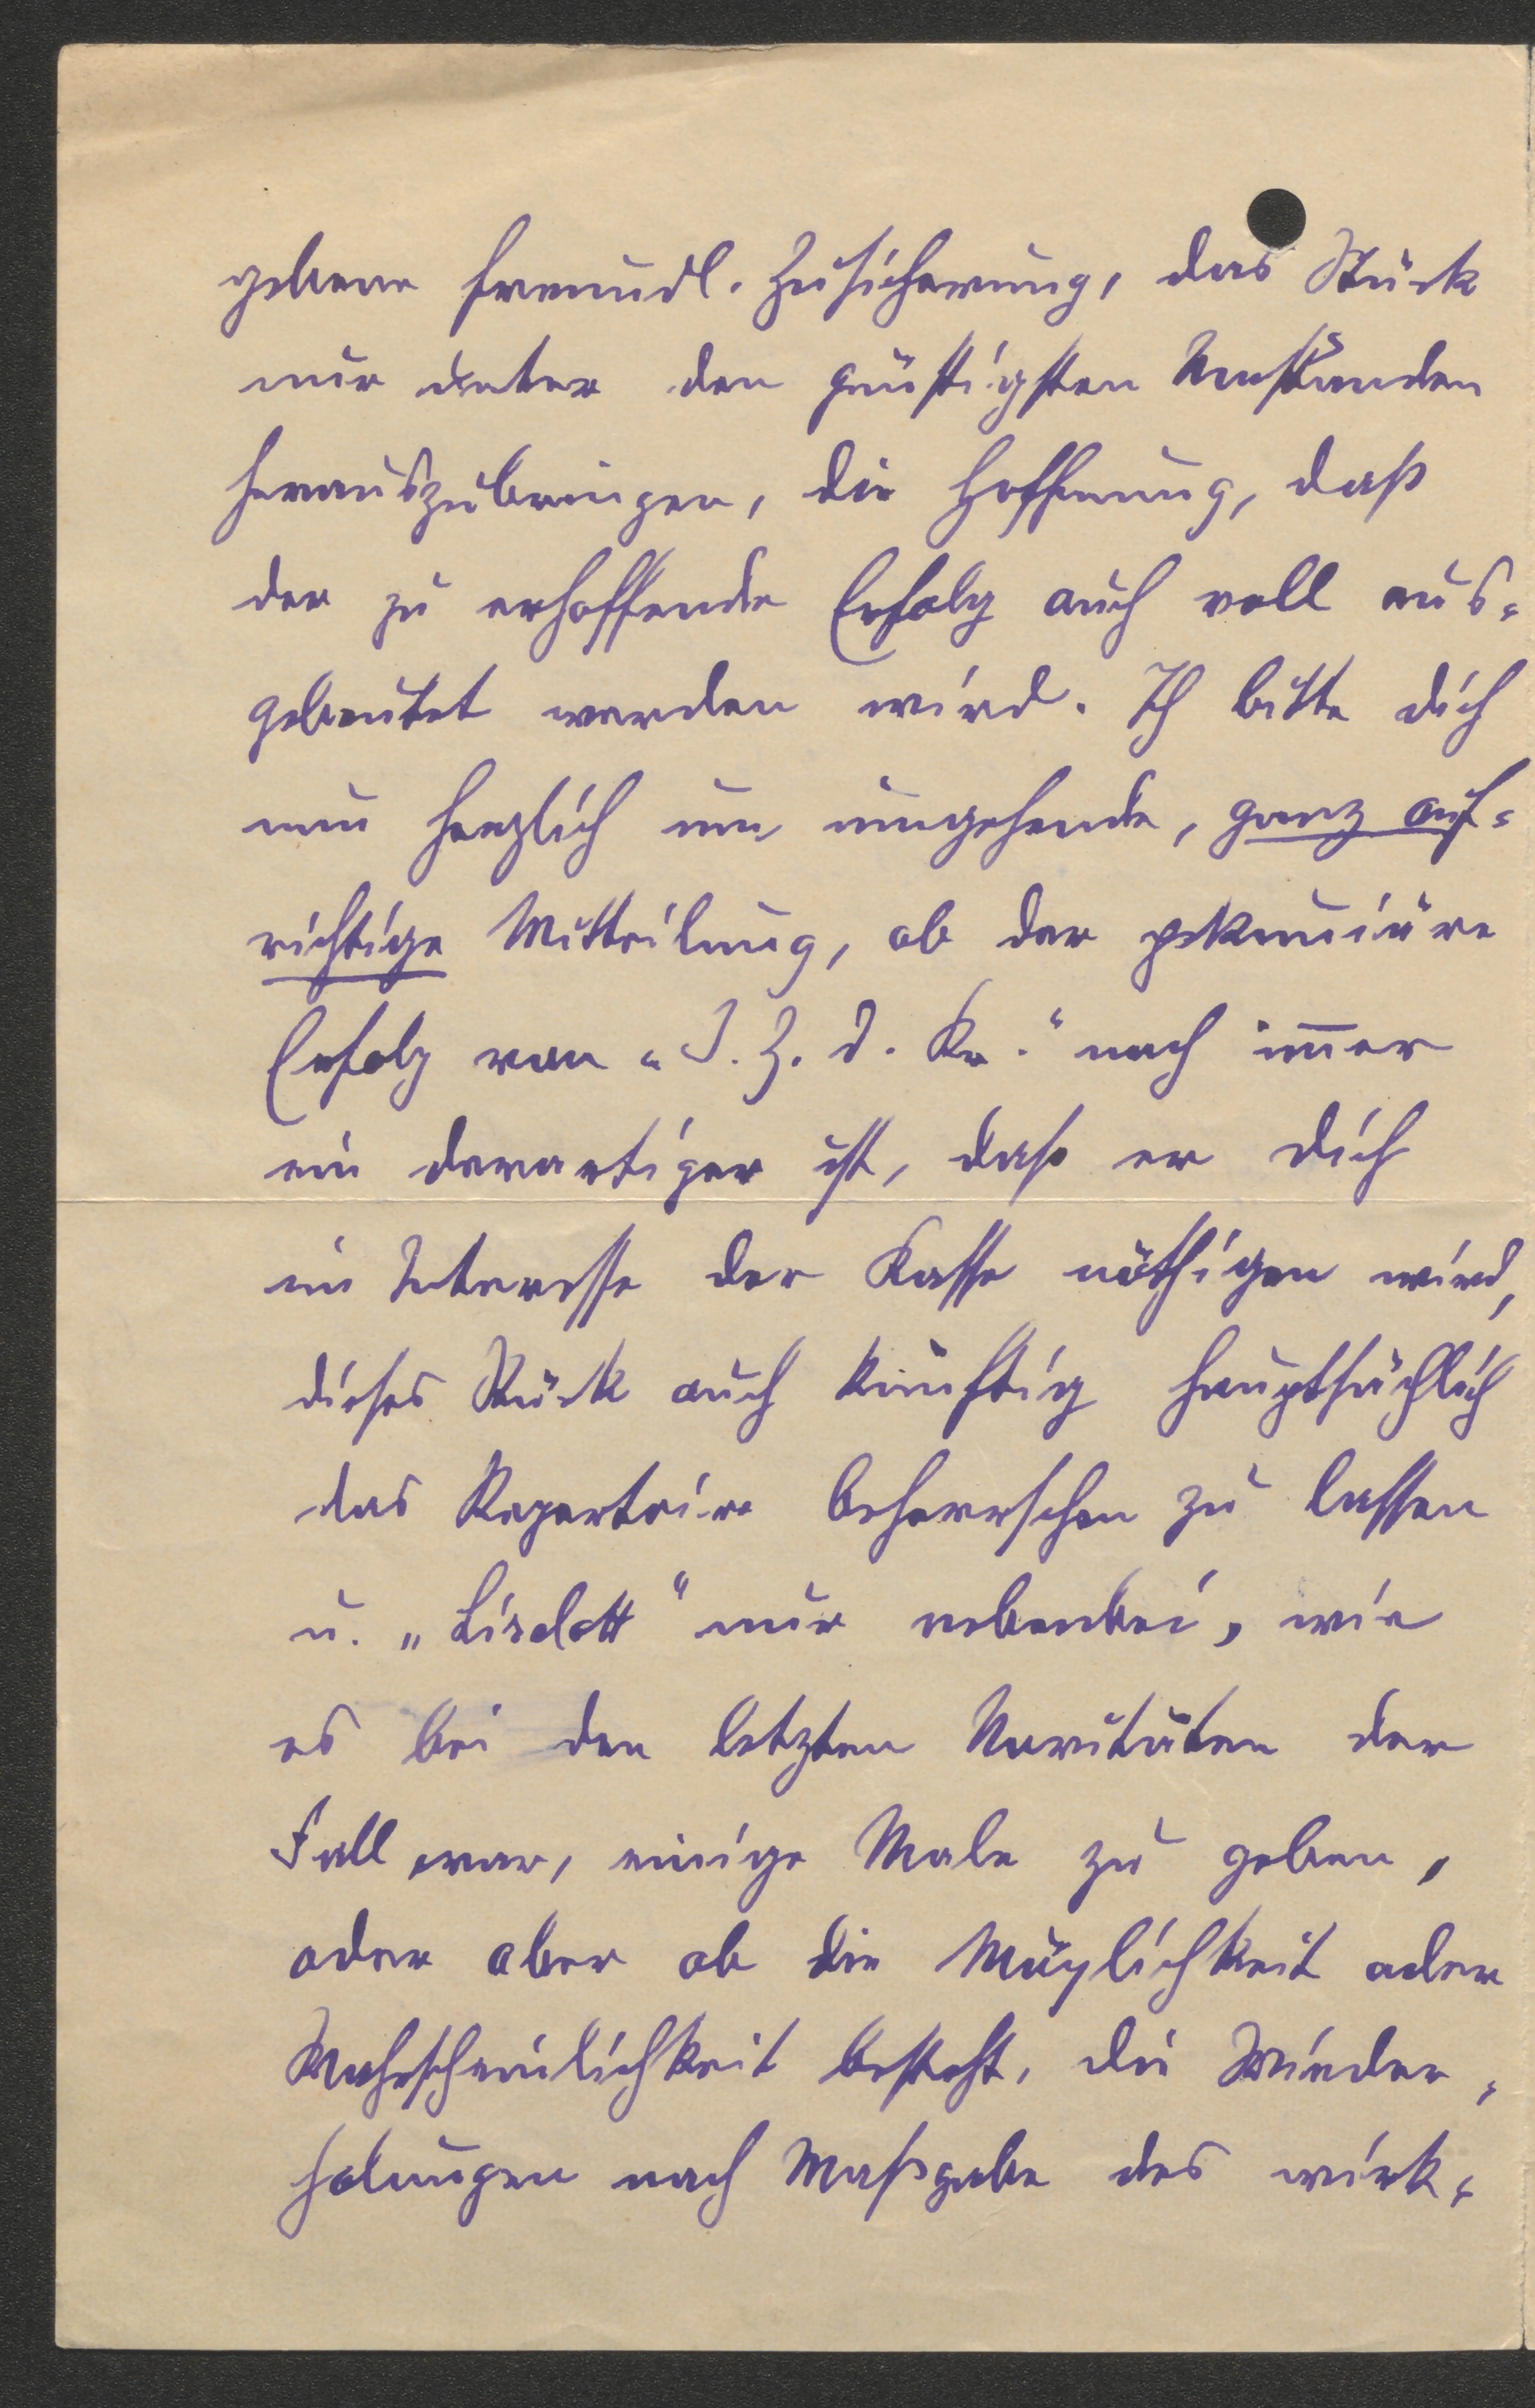 gebene freundl. Zusicherung, das Stück
nur unter den günstigsten Umständen
herauszubringen, die Hoffnung, daß
der zu erhoffende Erfolg auch voll aus-
gebeutet werden wird. Ich bitte dich
nun herzlich um umgehende, ganz auf-
richtige Mitteilung, ob der pekuniäre
Erfolg von „I. Z. d. Kr." noch immer
ein derartiger ist, daß er dich
im Interesse der Kasse nöthigen wird,
dieses Stück auch künftig hauptsächlich
das Repertoire beherrschen zu lassen
u. „Liselott" nur nebenbei, wie
es bei den letzten Novitäten der
Fall war, einige Male zu geben,
oder aber ob die Möglichkeit oder
Wahrscheinlichkeit besteht, die Wieder-
holungen nach Maßgabe des wirk-